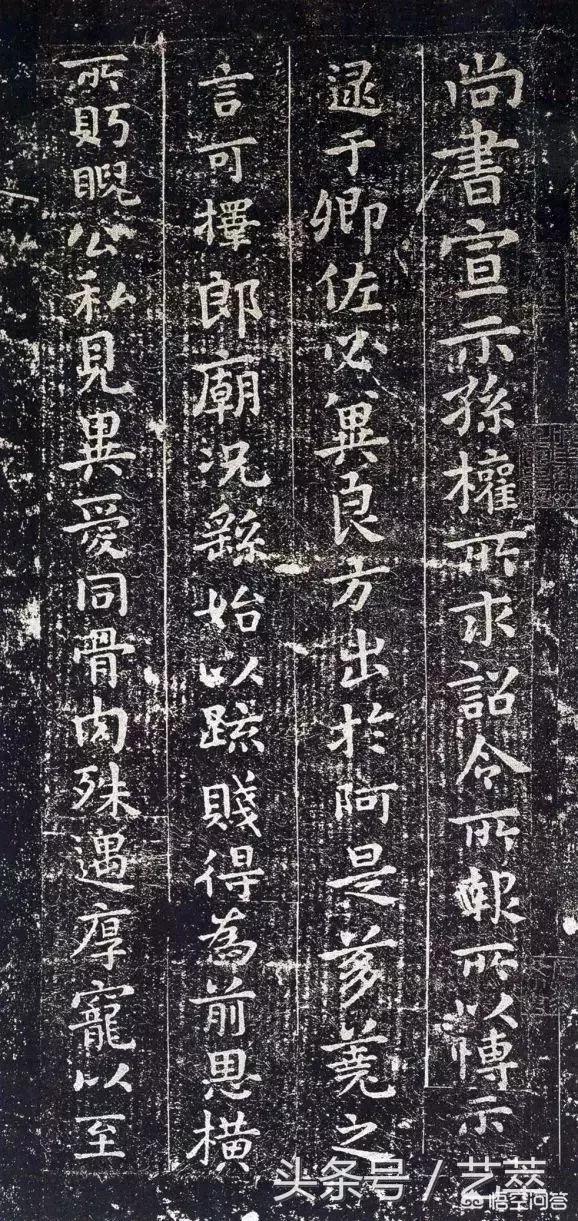 尚書宣示孫權所求詔令所報所以博示
逮于卿佐必冀良方出於阿是芻蕘之
言可擇郎廟況繇始以疏賤得為前恩橫
所眄睨公私見異愛同骨肉殊遇厚寵以至
头条号／艺萃
悟空问答